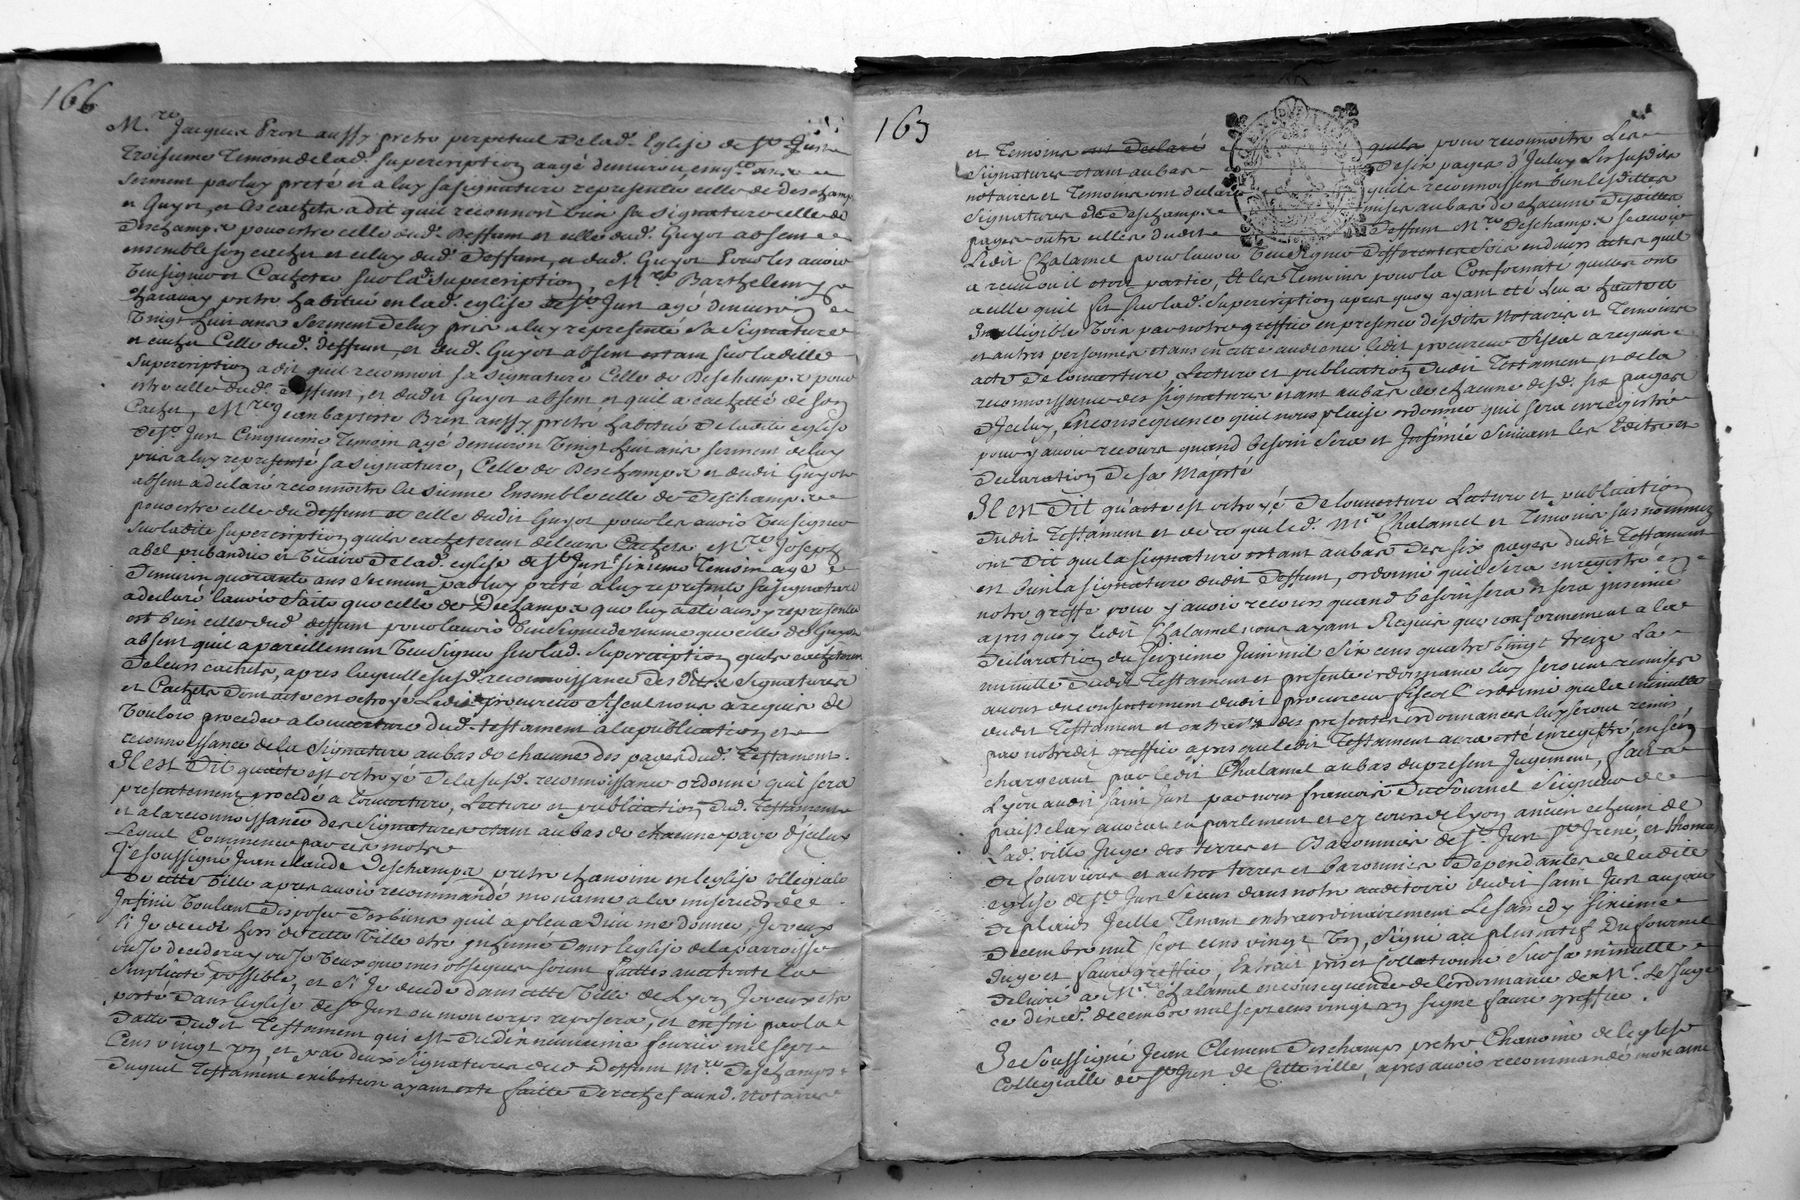 166
M.re Jacques Pron aussy pretre perpetuel de lad. Eglise de St Just
troisieme temoin de lad. superscription aagé denviron cinq.te ans
serment par luy preté et a luy sa signature representée celle de deschamps
et Guyot, et les cachets a dit quil reconnoit bien sa signature celle de
Deschamps pour estre celle dud. Deffunt et celle dud. Guyot absent
ensemble son cachet et celuy dud. deffunt, et dud. Guyot Pour les avoir
veu signer et Cacheter sur lad. superscription, M.re Barthelemy
pretre habitué en lad. eglise de St Just agé denviron
vingt huit ans serment de luy pris a luy representé sa signature
et cachet Celle dud. deffunt, et dud. Guyot absent estant sur laditte
superscription a dit quil reconnoit sa signature Celle de Deschamps pour
estre celle dud. deffunt, et dudit Guyot absent et quil a cachetté de son
Cachet, M.re Jean baptiste Brun aussy pretre habitué de ladite eglise
de St Just Cinquieme temoin agé denviron vingt huit ans serment de luy
pris a luy representé sa signature, Celle de Deschamps et dudit Guyot
absent a declaré reconnoitre la sienne Ensemble celle de Deschamps
pour estre celle du deffunt et celle dudit Guyot pour les avoir veu signer
sur ladite superscription quils cacheterent de leurs Cachets M.re Joseph
abel prebandier et vicaire de lad. eglise de St Just sixieme temoin agé
denviron quarante ans serment par luy preté a luy representé sa signature
a declaré lavoir faite que celle de Deschamps que luy a eté aussy representée
est bien celle dud. deffunt pour lavoir veu signer de meme que celle de Guyot
absent quil a pareillement veu signer sur lad. superscription quils cacheterent
de leurs cachets, apres laquelle susd. reconnoissance desdites signatures
et Cachets dont acte est octroyé Ledit procureur fiscal nous a requis de
vouloir proceder a louverture dud. testament a la publication et
reconnoissance de la signature au bas de chacune des pages dud. testament.
Il est dit quacte est octroyé de la susd. reconnoissance ordonné quil sera
presentement procedé a louverture, Lecture et publication dud. testament
et a la reconnoissance des signatures etant au bas de chacune page dicelux
Lequel Commence par ces mots
Je soussigné Jean claude deschamps pretre chanoine en leglise collegiale
de cette ville apres avoir recommandé mon ame a la misericorde
Infinie voulant disposer des biens quil a pleu a dieu me donner, Je veux
si Je decede hors de cette ville etre inhumé dans leglise de la parroisse
ou Je decederay ou Je veux que mes obseques soient faittes avec toute la
simplicité possible, et si Je decede dans cette ville de Lyon Je veux etre
porté dans leglise de St Just ou mon corps reposera, et enfin par la
datte dudit testament qui est du dix neuvieme fevrier mil sept
Cens vingt un, et par deux signatures dud. deffunt M.re Deschamps
duquel testament exibition ayant esté faitte derechef auxd. Notaires
163
et temoins ont declaré quils pour reconnoitre les
signatures etant au bas de six pages d'Iceluy Lesusdits
notaires et temoins ont declaré quils reconnoissent bien lesdittes
signatures de Deschamps mises au bas de chacune desdittes
pages outre celles dudit deffunt M.re Deschamps scavoir
Ledit Chalamel pour lavoir veu signer differentes fois en divers actes quil
a receu ou il etoit partie, Et les temoins pour la Conformité quelles ont
a celle quil fit sur lad. superscription apres quoy ayant eté leu a haute et
Intelligible voix par notre greffier en presence desdits Notaires et temoins
et autres personnes etans en cette audience ledit procureur fiscal a requis
acte de louverture Lecture et publication dudit testament et de la
reconnoissance des signatures etant au bas de chacune desd. six pages
d'Iceluy, En consequence quil nous plaise ordonner quil sera enregistré
pour y avoir recours quand besoin sera et Insinué suivant les Edits et
declaration de sa Majesté
Il est dit qu'acte est octroyé de louverture Lecture et publication
dudit testament et de ce que led. M.re Chalamel et temoins surnommez
ont dit que la signature estant au bas des six pages dudit testament
est bien la signature dudit deffunt, ordonné quil sera enregistré en
notre greffe pour y avoir recours quand besoin sera et sera insinué
apres quoy ledit Chalamel nous ayant Requis que conformement a la
declaration du seizieme Juin mil six cens quatre vingt treize La
minutte dudit testament et presente ordonnance luy seront remises
avons du consentement dudit procureur fiscal ordonné que la minutte
dudit testament et extrait des presentes ordonnances luy seront remis
par notredit greffier apres que ledit testament aura eté enregistré, en sen
chargeant par ledit Chalamel au bas du present Jugement, fait a
Lyon audit saint Just par nous francois Dufournel seigneur de
avocat en parlement et ez cours de Lyon ancien echevin de
Lad. ville Juge des terres et Baronnies de St Just St Irené, et thomas
de fourvieres et autres terres et baronnies dependantes de ladite
eglise de St Just sceant dans notre auditoire dudit saint Just au jour
de plaids Icelle tenant extraordinairement Le samedy sixieme
decembre mil sept cens vingt un, signé au plumitif Dufournel
Juge et faure greffier, Extrait pris et collationné sur sa minutte
delivré a M.re Chalamel en consequence de lordonnance de M.r Le Juge
ce dixe. decembre mil sept cens vingt un signé faure greffier.
Je soussigné Jean Clement Deschamps pretre Chanoine de leglese
Collegialle de St Just de Cette ville, apres avoir recommandé mon ame